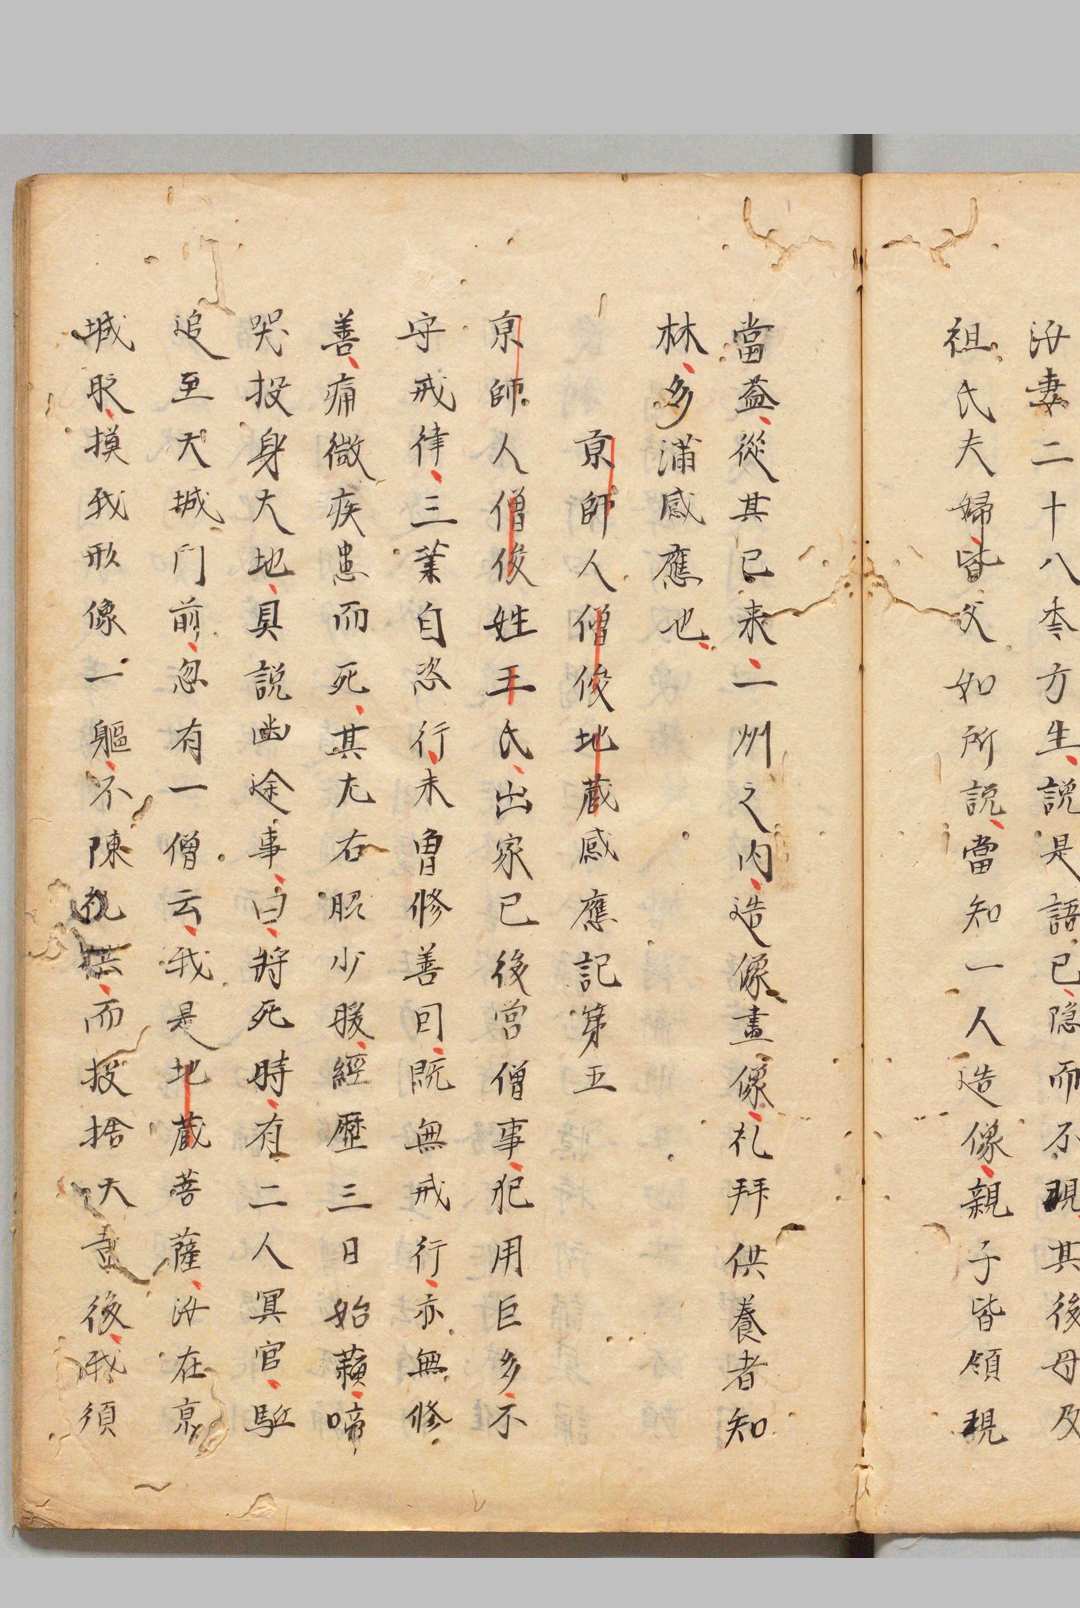 汝妻二十八年方生説是語已隠而不現其後母及
祖氏夫婦皆父如所説當知一人造像親子皆領親
當益從其已来二州之内造像畫像礼拜供養者知
林多滿感應也
京師人僧俊地蔵感應記第五
京師人僧俊姓王氏出家已後営僧事犯用巨多不
守戒律三業自恣行未曽修善因既無戒行亦無修
善痛微疾患而死其左右眤少暖經歴三日始蘓啼
哭投身大地具説幽途事曰将死時有二人冥官駈
追至大城門前忽有一僧云我是地蔵菩薩汝在京
城日摸我形像一軀不陳礼供而投捨大畫後我須